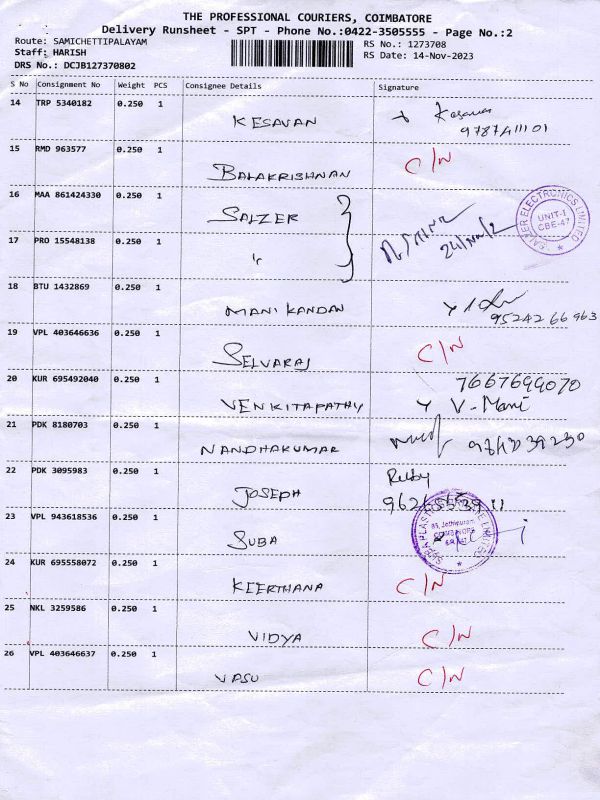 THE PROFESSIONAL COURIERS, COIMBATORE
Delivery Runsheet - SPT - Phone No.:0422-3505555 - Page No.:2
Route: SAMICHETTIPALAYAM
Staff: HARISH
DRS No.: DCJB127370802
RS No.: 1273708
RS Date: 14-Nov-2023
S No Consignment No Weight PCS Consignee Details Signature
14 TRP 5340182 0.250 1
KESAVAN Kesavan
9787411101
15 RMD 963577 0.250 1
BALAKRISHNAN C/N
16 MAA 861424330 0.250 1
SALZER
SALZER ELECTRONICS LIMITED
UNIT-I
CBE-47
17 PRO 15548138 0.250 1
"
18 BTU 1432869 0.250 1
MANIKANDAN
95242 66 963
19 VPL 403646636 0.250 1
SELVARAJ C/N
20 KUR 695492040 0.250 1
7667699070
VENKITAPATHY V-Mani
21 PDK 8180703 0.250 1
NANDHAKUMAR
22 PDK 3095983 0.250 1
JOSEPH
23 VPL 943618536 0.250 1
SUBA
24 KUR 695558072 0.250 1
KEERTHANA C/N
25 NKL 3259586 0.250 1
VIDYA C/N
26 VPL 403646637 0.250 1
VASU C/N